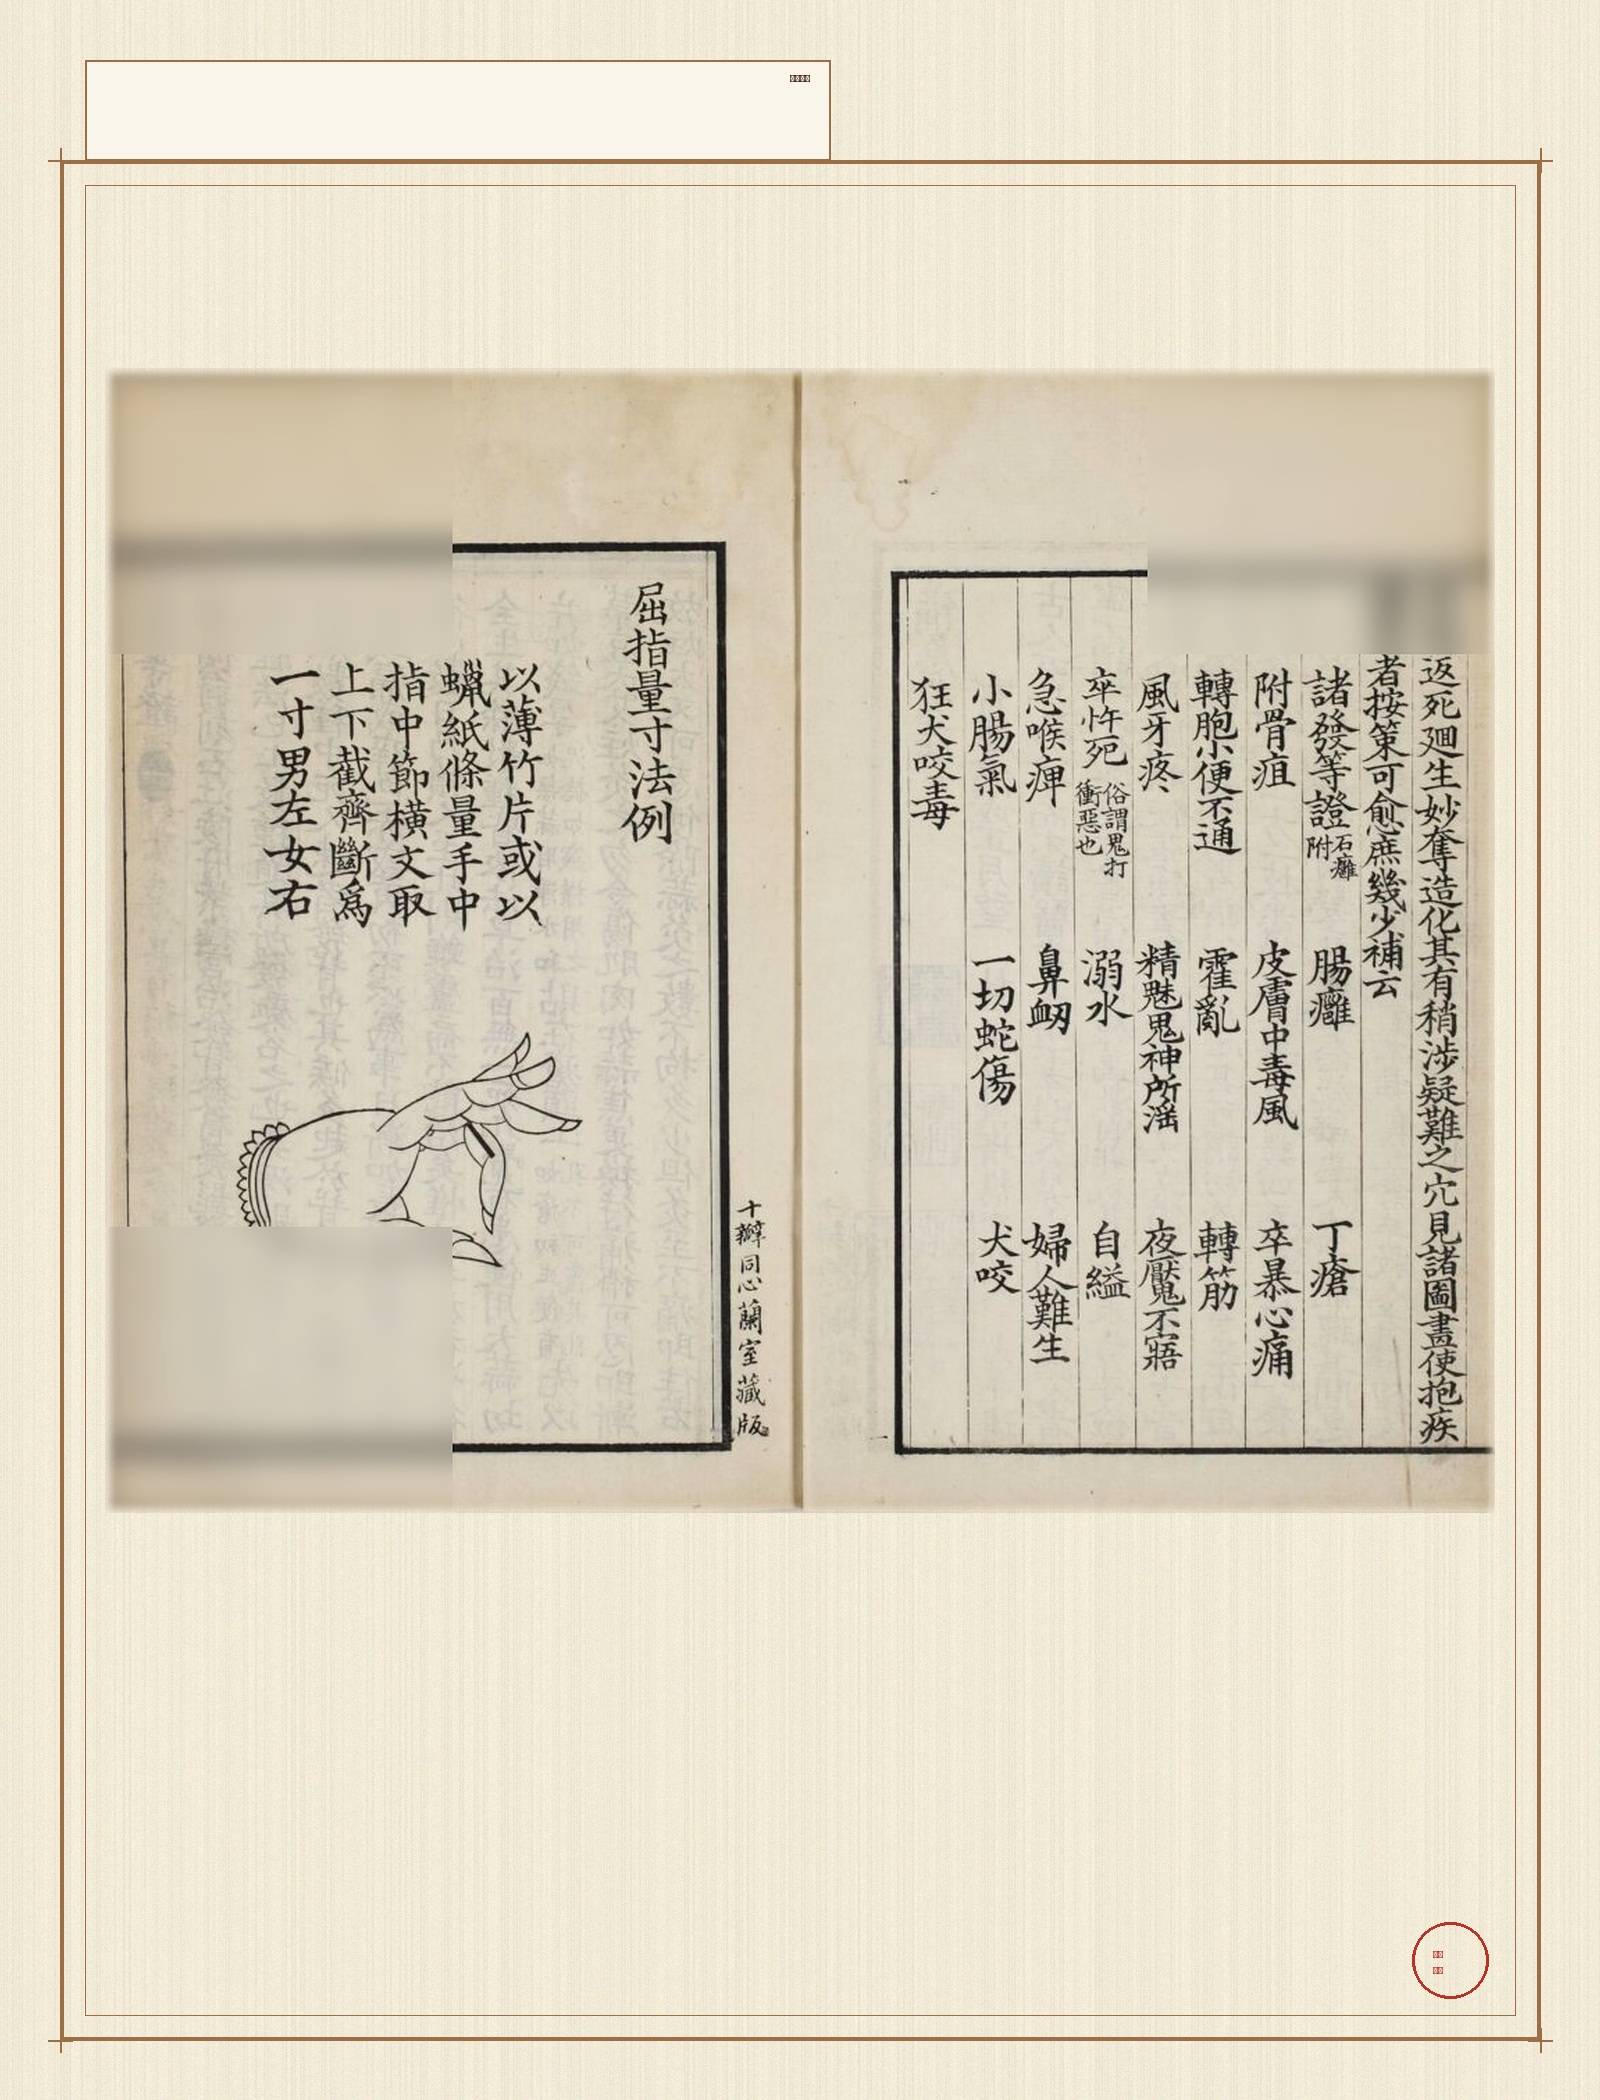 返死廻生妙奪造化其有稍涉疑難之穴見諸圖畫使抱疾
者按策可愈庶幾少補云
諸發等證石癰附 腸癰 丁瘡
附骨疽 皮膚中毒風 卒暴心痛
轉胞小便不通 霍亂 轉筋
風牙疼 精魅鬼神所滛 夜厭鬼不寤
卒忤死俗謂鬼打衝惡也 溺水 自縊
急喉痺 鼻衂 婦人難生
小腸氣 一切蛇傷 犬咬
狂犬咬毒
十瓣同心蘭室藏版
屈指量寸法例
以薄竹片或以
蠟紙條量手中
指中節橫文取
上下截齊斷爲
一寸男左女右